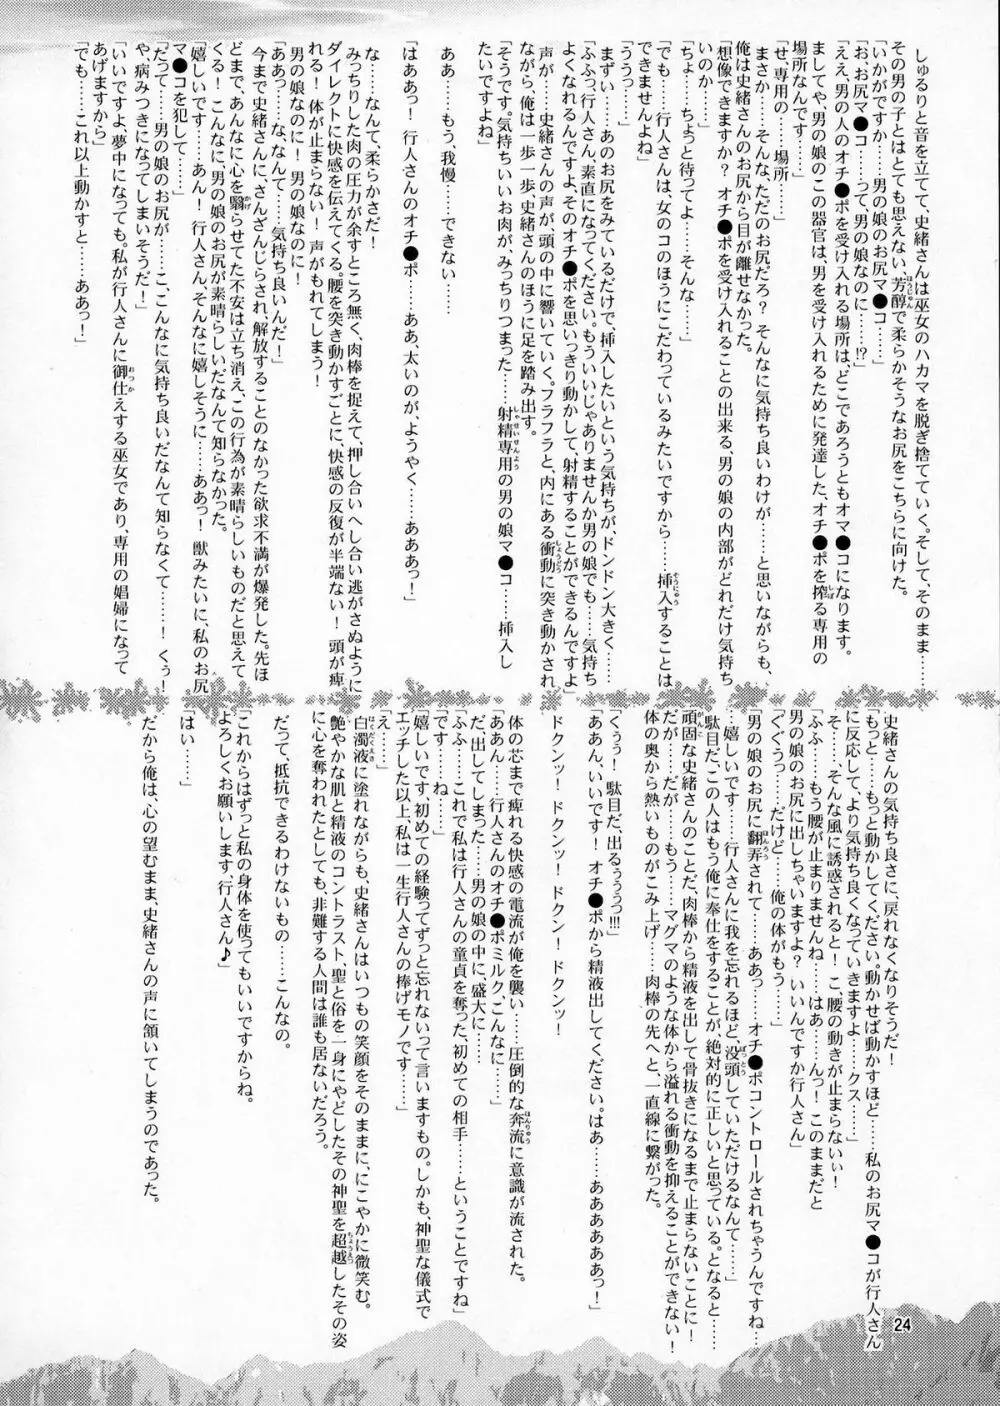 しゅるりと音を立てて、史緒さんは巫女のハカマを脱ぎ捨てていく。そして、そのまま……
その男の子とはとても思えない、芳醇で柔らかそうなお尻をこちらに向けた。
「いかがですか……男の娘のお尻マ●コ……」
「お、お尻マ●コ……って、男の娘なのに……!?」
「ええ、男の人のオチ●ポを受け入れる場所は、どこであろうともオマ●コになります。
ましてや、男の娘のこの器官は、男を受け入れるために発達した、オチ●ポを搾る専用の
場所なんです……」
「せ、専用の……場所……」
まさか……そんな、ただのお尻だろ？ そんなに気持ち良いわけが……と思いながらも、
俺は史緒さんのお尻から目が離せなかった。
「想像できますか？ オチ●ポを受け入れることの出来る、男の娘の内部がどれだけ気持ち
いいのか……」
「ちょ……ちょっと待ってよ……そんな……」
「でも……行人さんは、女のコのほうにこだわっているみたいですから……挿入することは
できませんよね」
「ううっ……」
まずい……あのお尻をみている。だけで、挿入したいという気持ちが、ドンドン大きく……
「ふふっ、行人さん、素直になってください。もういいじゃありませんか男の娘でも……気持ち
よくなれるんですよ、そのオチ●ポを思いっきり動かして、射精することができるんですよ」
声が……史緒さんの声が、頭の中に響いていく。フラフラと、内にある衝動に突き動かされ
ながら、俺は一歩一歩、史緒さんのほうに足を踏み出す。
「そうです。気持ちいいお肉が、みっちりつまった……射精専用の男の娘マ●コ……挿入し
たいですよね」
ああ……もう、我慢……できない……
「はああっ！ 行人さんのオチ●ポ……ああ、太いのが、ようやく……あああっ！」
な……なんて、柔らかさだ！
みっちりした肉の圧力が余すところ無く、肉棒を捉えて、押し合いへし合い逃がさぬように
ダイレクトに快感を伝えてくる。腰を突き動かすごとに、快感の反復が半端ない！ 頭が痺
れる！ 体が止まらない！ 声がもれてしまう！
男の娘なのに！ 男の娘なのに！
「ああっ……な、なんて……気持ち良いんだ！」
今まで史緒さんに、さんざんじらされ、解放することのなかった欲求不満が爆発した。先ほ
どまで、あんなに心を翳らせてた不安は立ち消え、この行為が素晴らしいものだと思えて
くる！ こんなに、男の娘のお尻が素晴らしいだなんて知らなかった。
「嬉しいです……あん！ 行人さん、そんなに嬉しそうに……ああっ！ 獣みたいに、私のお尻
マ●コを犯して……」
「だって……男の娘のお尻が……こ、こんなに気持ち良いだなんて知らなくて……！ くぅ！
や、病みつきになってしまいそうだ！」
「いいですよ、夢中になっても。私が行人さんに御仕えする巫女であり、専用の娼婦になって
あげますから」
「でも……これ以上動かすと……ああっ！」
史緒さんの気持ち良さに、戻れなくなりそうだ！
「もっと……もっと動かしてください。動かせば動かすほど……私のお尻マ●コが行人さん
に反応して、より気持ち良くなっていきますよ……クス……」
そ……そんな風に誘惑されると！ こ、腰の動きが止まらないぃ！
「ふふ……もう腰が止まりませんね……はあ……んっ！ このままだと
男の娘のお尻に出しちゃいますよ？ いいんですか行人さん」
「ぐぐうっ……だけど……俺の体がもう……」
「男の娘のお尻に翻弄されて……ああっ……オチ●ポコントロールされちゃうんですね……
…嬉しいです……行人さんに我を忘れるほど、没頭していただけるなんて……」
駄目だ、この人はもう俺に奉仕をすることが、絶対的に正しいと思っている。となると……
頑固な史緒さんのことだ、肉棒から精液を出して骨抜きになるまで止まらないことに！
だが……だが……もう……マグマのような体から溢れる衝動を抑えることができない！
体の奥から熱いものがこみ上げ……肉棒の先へと、一直線に繋がった。
「くぅぅ！ 駄目だ、出るぅぅうっ!!!」
「ああん、いいです！ オチ●ポから精液出してください。はぁ……あああああっ！」
ドクンッ！ ドクンッ！ ドクン！ ドクンッ！
体の芯まで痺れる快感の電流が俺を襲い……圧倒的な奔流に意識が流された。
「ああん……行人さんのオチ●ポミルク、こんなに……」
だ、出してしまった……男の娘の中に、盛大に……
「ふふ……これで私は行人さんの童貞を奪った、初めての相手……ということですね」
「です……ね……」
「嬉しいです、初めての経験ってずっと忘れないって言いますもの。しかも、神聖な儀式で
エッチした以上、私は一生行人さんの捧げモノです……」
「え……」
白濁液に塗れながらも、史緒さんはいつもの笑顔をそのままに、にこやかに微笑む。
艶やかな肌と精液のコントラスト、聖と俗を一身にやどしたその神聖を超越したその姿
に心を奪われたとしても、非難する人間は誰も居ないだろう。
だって、抵抗できるわけないもの……こんなの。
「これからはずっと私の身体を使ってもいいですからね。
よろしくお願いします、行人さん♪」
「はい……」
だから俺は、心の望むまま、史緒さんの声に頷いてしまうのであった。
24